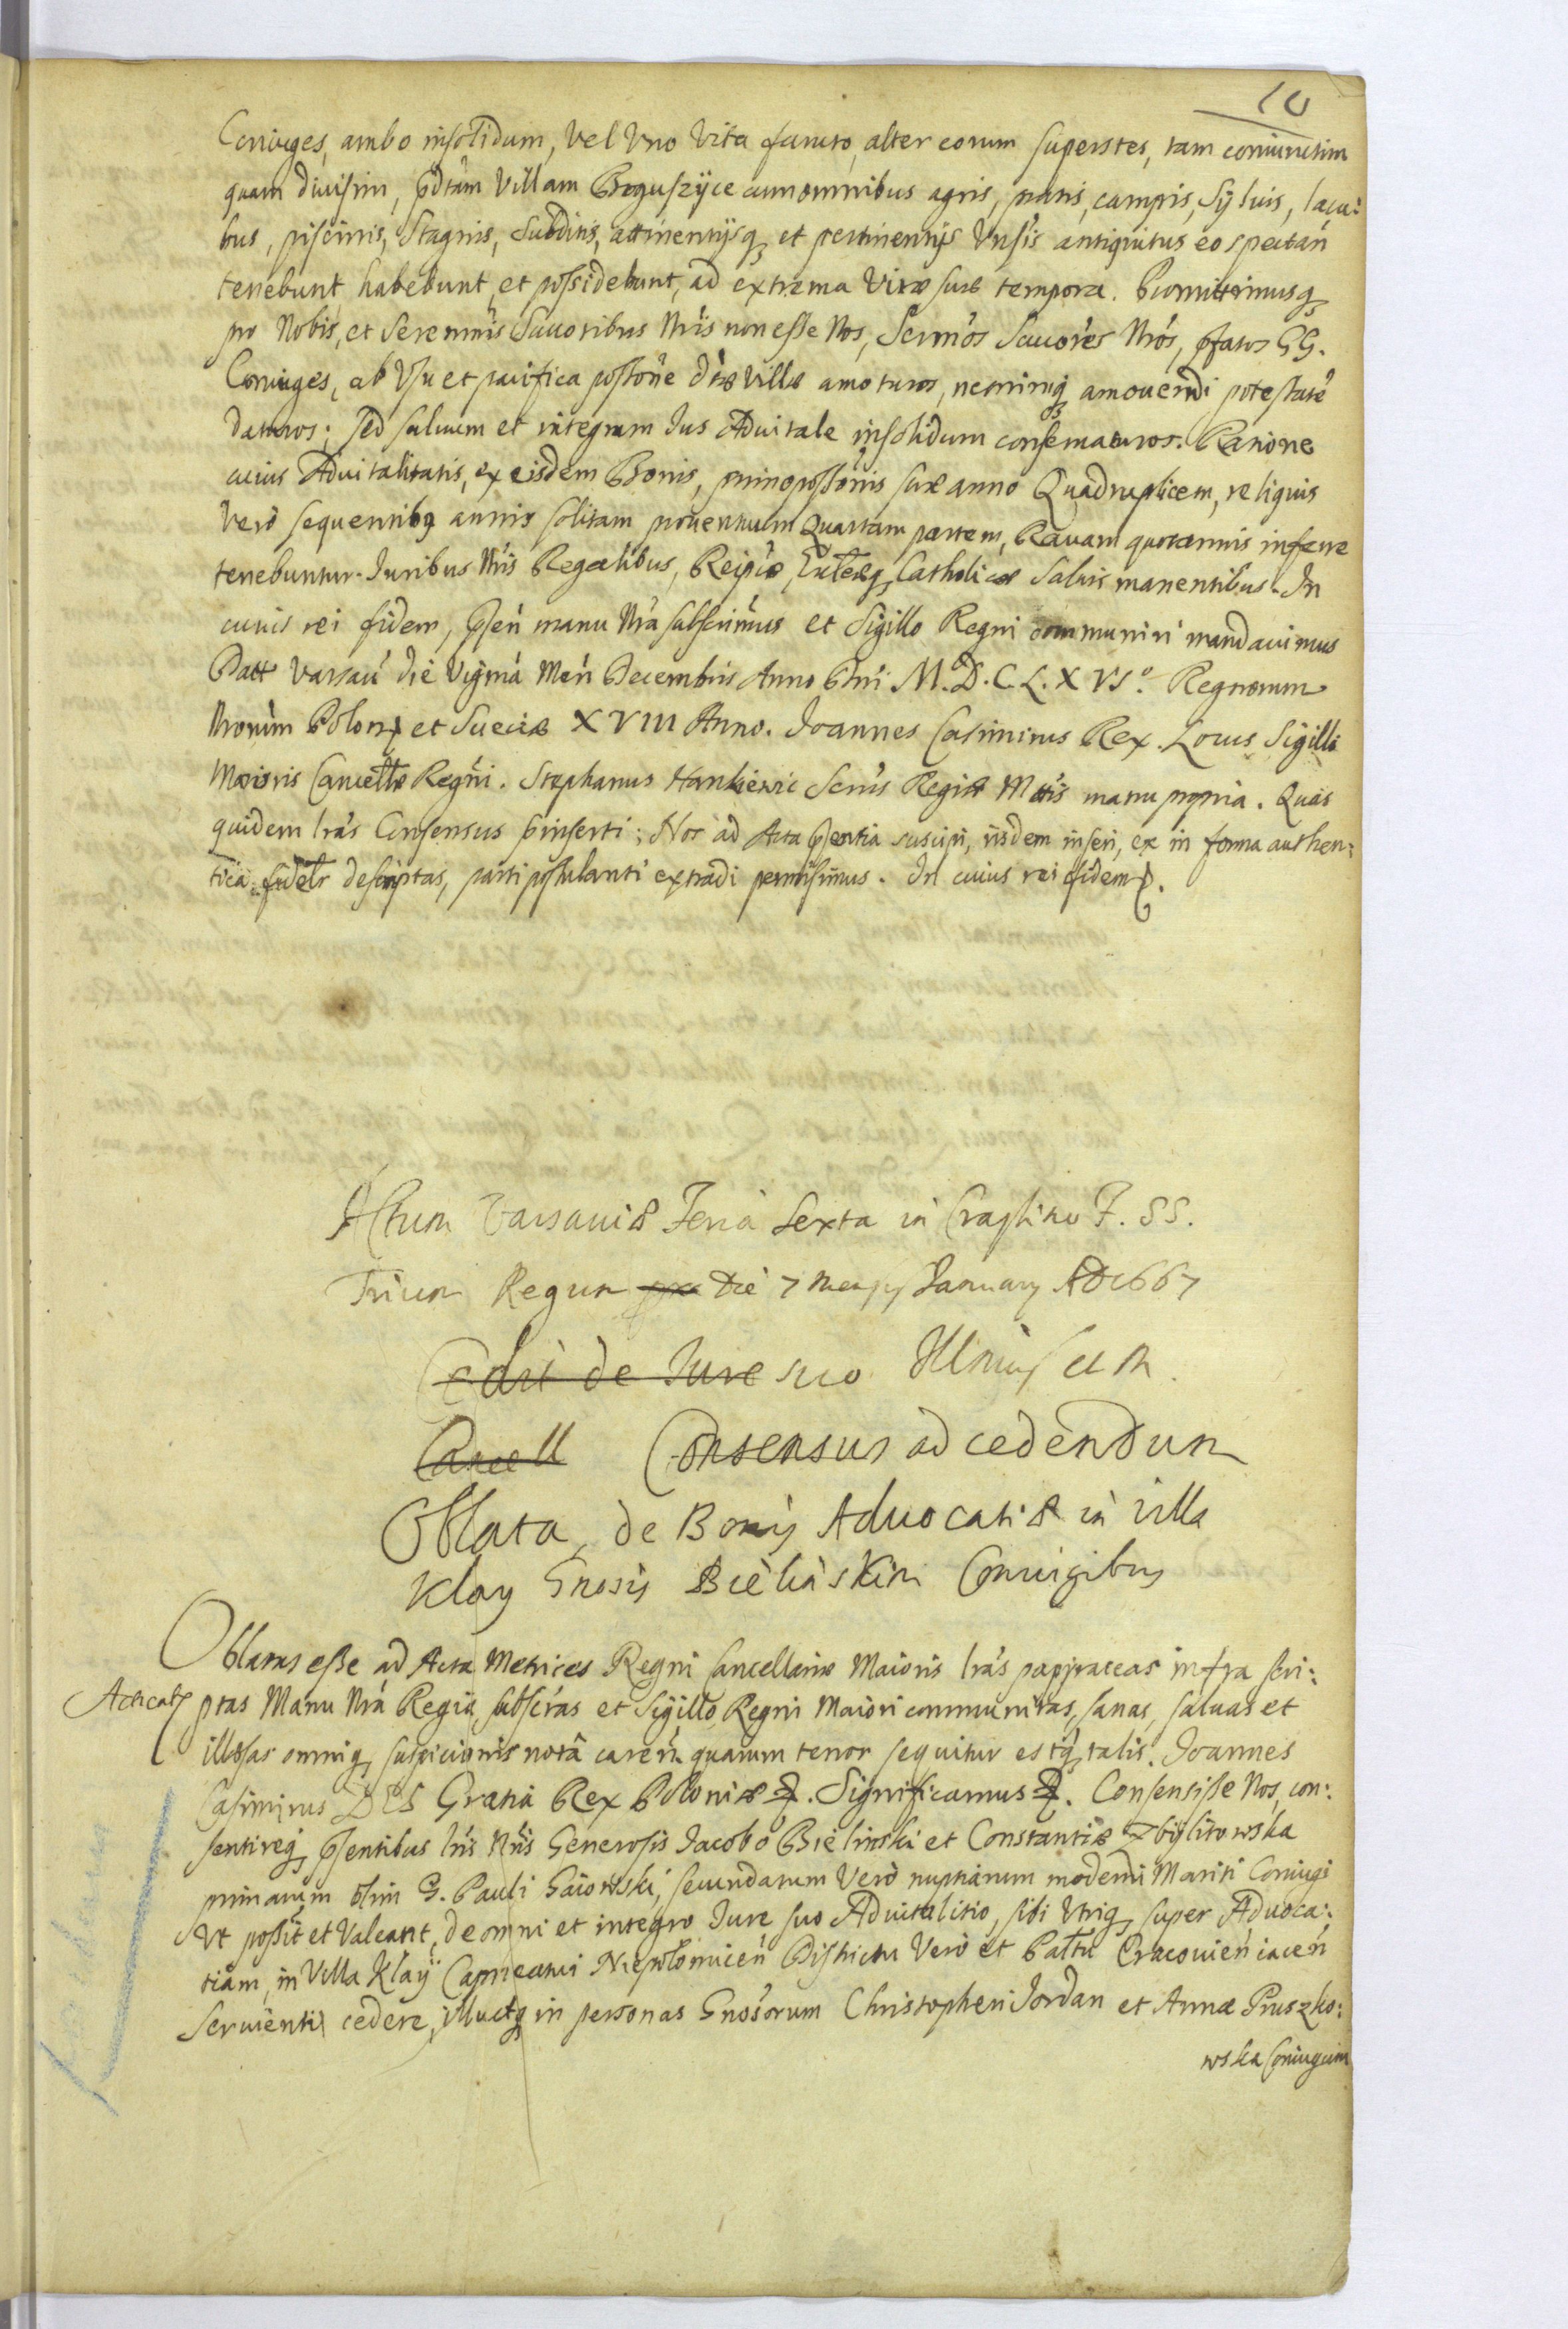 10
Coniuges, ambo insolidum, Vel Vno Vita functo, alter eorum superstes, tam coniunctim
quam diuisim, pdtam Villam Boguszÿce cum omnibus agris, pratis, campis, Sÿluis, lacu:
bus, piscinis, Stagnis, Subditis, attinentÿsq, et pertinentÿs Vnsis antiquitus eo spectań
tenebunt habebunt, et possidebunt, ad extrema Vitæ suæ tempora. Promittimusq,
pro Nobis, et Serennis Succoribus Nris non esse Nos, Sermos Succores Nros, pfatos GG.
Coniuges, ab Vsu et pacifica possone dtæ Villæ amoturos, neminiq, amouendi potestatē
daturos; sed saluum et integrum Ius Aduitale insolidum conseruaturos. Ratione
cuius Aduitalitatis, ex eisdem Bonis, primo possonis suæ anno Quadruplicem, reliquis
Vero sequentibq annis solitam prouentuum Quartam partem, Rauam quotannis inferre
tenebuntur. Iuribus Nris Regalibus, Reipcæ, Ecclæq, Catholicæ saluis manentibus. In
cuius rei fidem, pseń manu Nra subscrimus et Sigillo Regni communiri mandauimus
Datt Varsau die Vigma Meń Decembris Anno Dni M.D.C.L.X VIº. Regnorum
Nrorum Polon et Sueciæ XVIII Anno. Ioannes Casimirus Rex. Locus Sigilli
Maioris Cancellæ Regni. Stephanus Hankiewic Secrius Regiæ Mttis manu propria. Quas
quidem lras Consensus pinserti; Nos ad Acta psentia suscipi, iisdem inseri, et in forma authen:
tica fidelr descriptas, parti postulanti extradi permisimus. In cuius rei fidem
Actum Varsauiæ Feria Sexta in Crastino F. SS.
Trium Regum die 7 Mensis January AD 1667
Cedit de Iure suo
Cancell Consensus ad cedendum
Oblata, de Bonis Aduocatiæ in villa
Klay Gnosis Bielinskim Coniugibus
Oblatas esse ad Acta Metrices Regni Cancellariæ Maioris lras pappiraceas infra scri:
Acticat
ptas Manu Nra Regia subscras et Sigillo Regni Maiori communitas, sanas, saluas et
illæsas omniq, suspicionis nota careń quarum tenor sequitur estq, talis. Ioannes
Casimirus DEI Gratia Rex Poloniæ &. Significamus &. Consensisse Nos, con:
sentireq, psentibus lris Nris Generosis Iacobo Bielinski et Constantiæ Zbÿlitowska
primarum olim G. Pauli Gaiowski, secundarum Vero nuptiarum moderni Mariti Coniugi
Vt possit et Valeant, de omni et integro Iure suo Aduitalitio, sibi Vtriq, super Aduoca:
tiam, in Villa Klaÿ Capitaneatui Niepołomiceń Districtu Vero et Pallu Cracouień iaceń
Seruienti cedere, illudq in personas Gnosorum Christopheri Jordan et Annæ Pruszko:
wska Coniugum